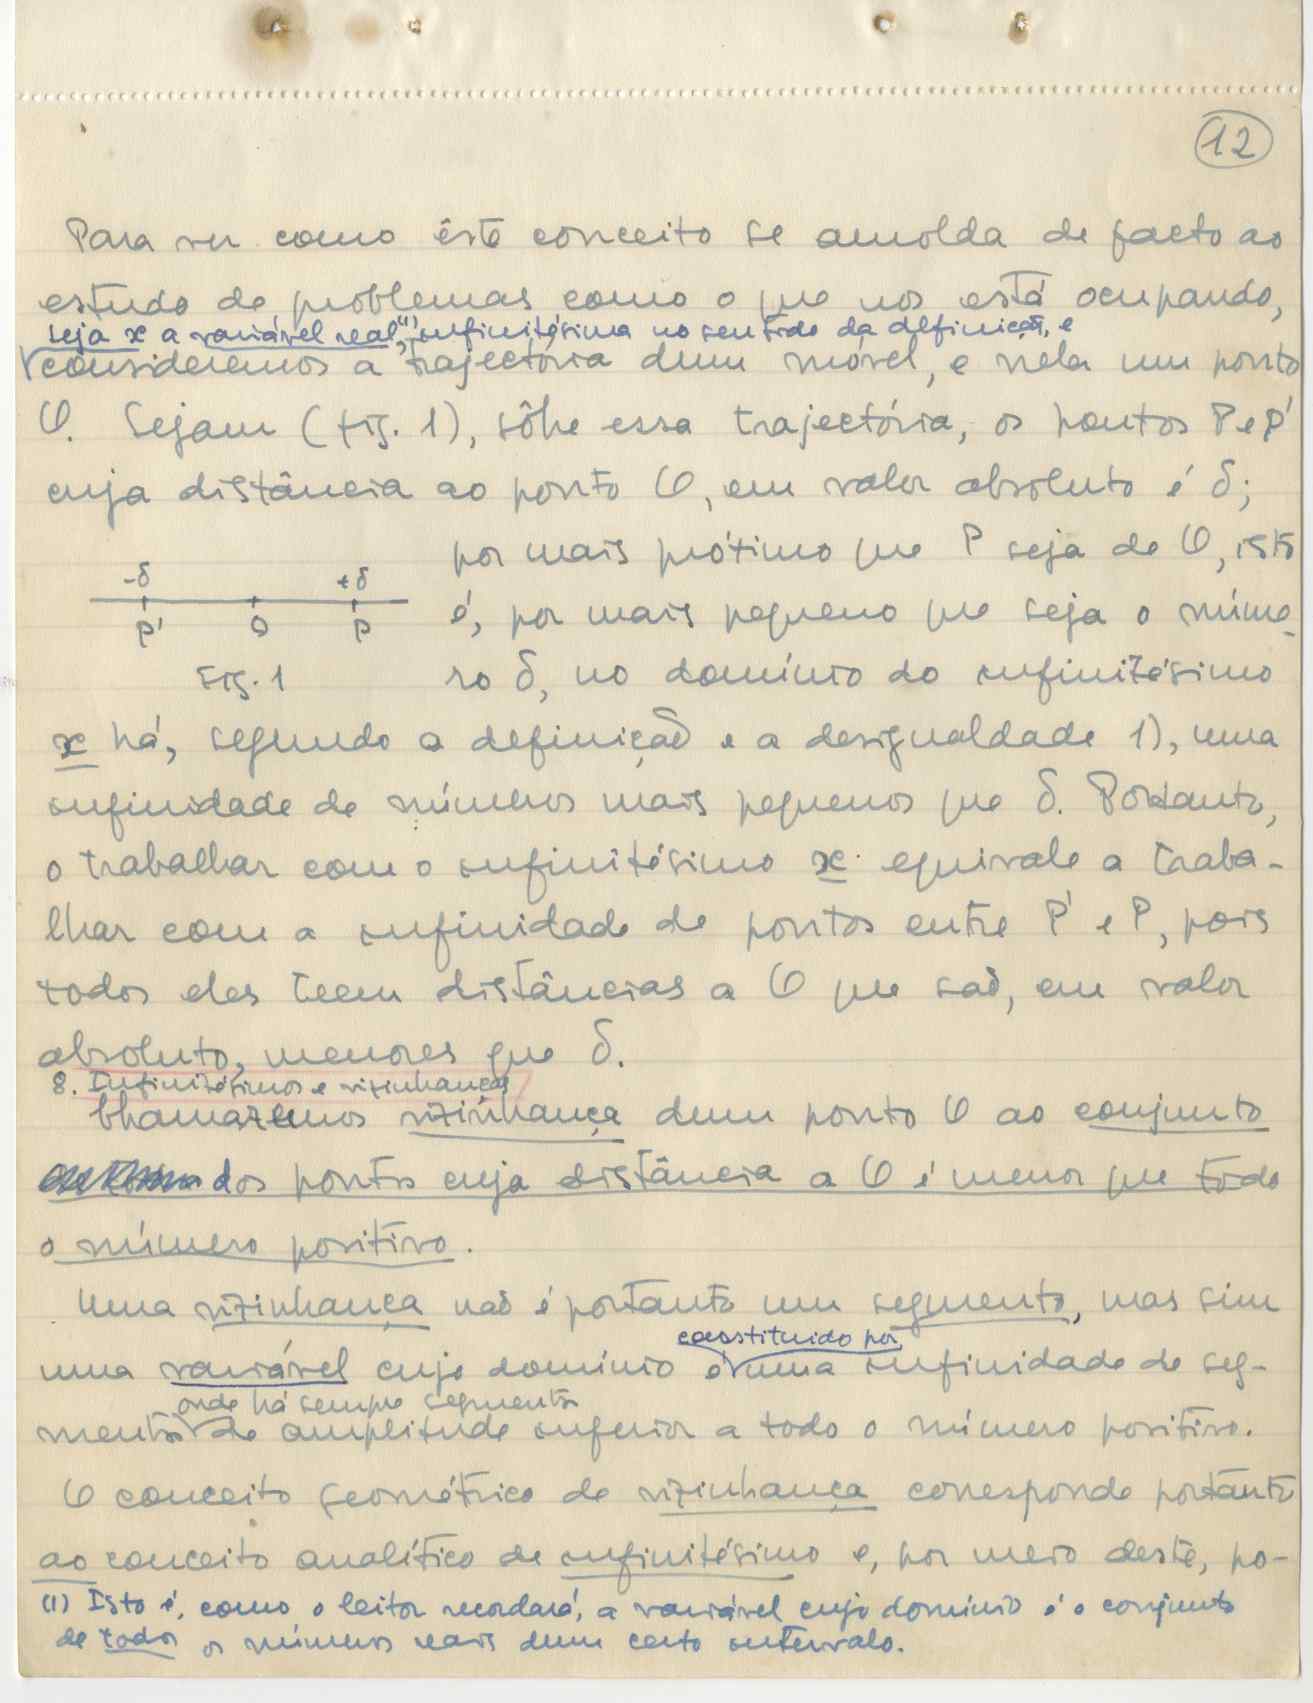 12
Para ver como êste conceito se amolda de facto ao
estudo de problemas como o que nos está ocupando,
seja x a variável real (1), infinitésima no sentido da definição, e
consideremos a trajectória dum móvel, e nela um ponto
O. Sejam (fig. 1), sôbre essa trajectória, os pontos P e P'
cuja distância ao ponto O, em valor absoluto é δ;
por mais próximo que P seja de O, isto
-δ +δ
é, por mais pequeno que seja o núme-
P' O P
fig. 1
ro δ, no domínio do infinitésimo
x há, segundo a definição e a desigualdade 1), uma
infinidade de números mais pequenos que δ. Portanto,
o trabalhar com o infinitésimo x equivale a traba-
lhar com a infinidade de pontos entre P' e P, pois
todos eles teem distâncias a O que são, em valor
absoluto, menores que δ.
8. Infinitésimos e vizinhanças
Chamaremos vizinhança dum ponto O ao conjunto
dos pontos cuja distância a O é menor que todo
o número positivo.
Uma vizinhança não é portanto um segmento, mas sim
constituido por
uma variável cujo domínio é uma infinidade de seg-
onde há sempre segmentos
mentos de amplitude inferior a todo o número positivo.
O conceito geométrico de vizinhança corresponde portanto
ao conceito analítico de infinitésimo e, por meio deste, po-
(1) Isto é, como o leitor recordará, a variável cujo domínio é o conjunto
de todos os números reais dum certo intervalo.